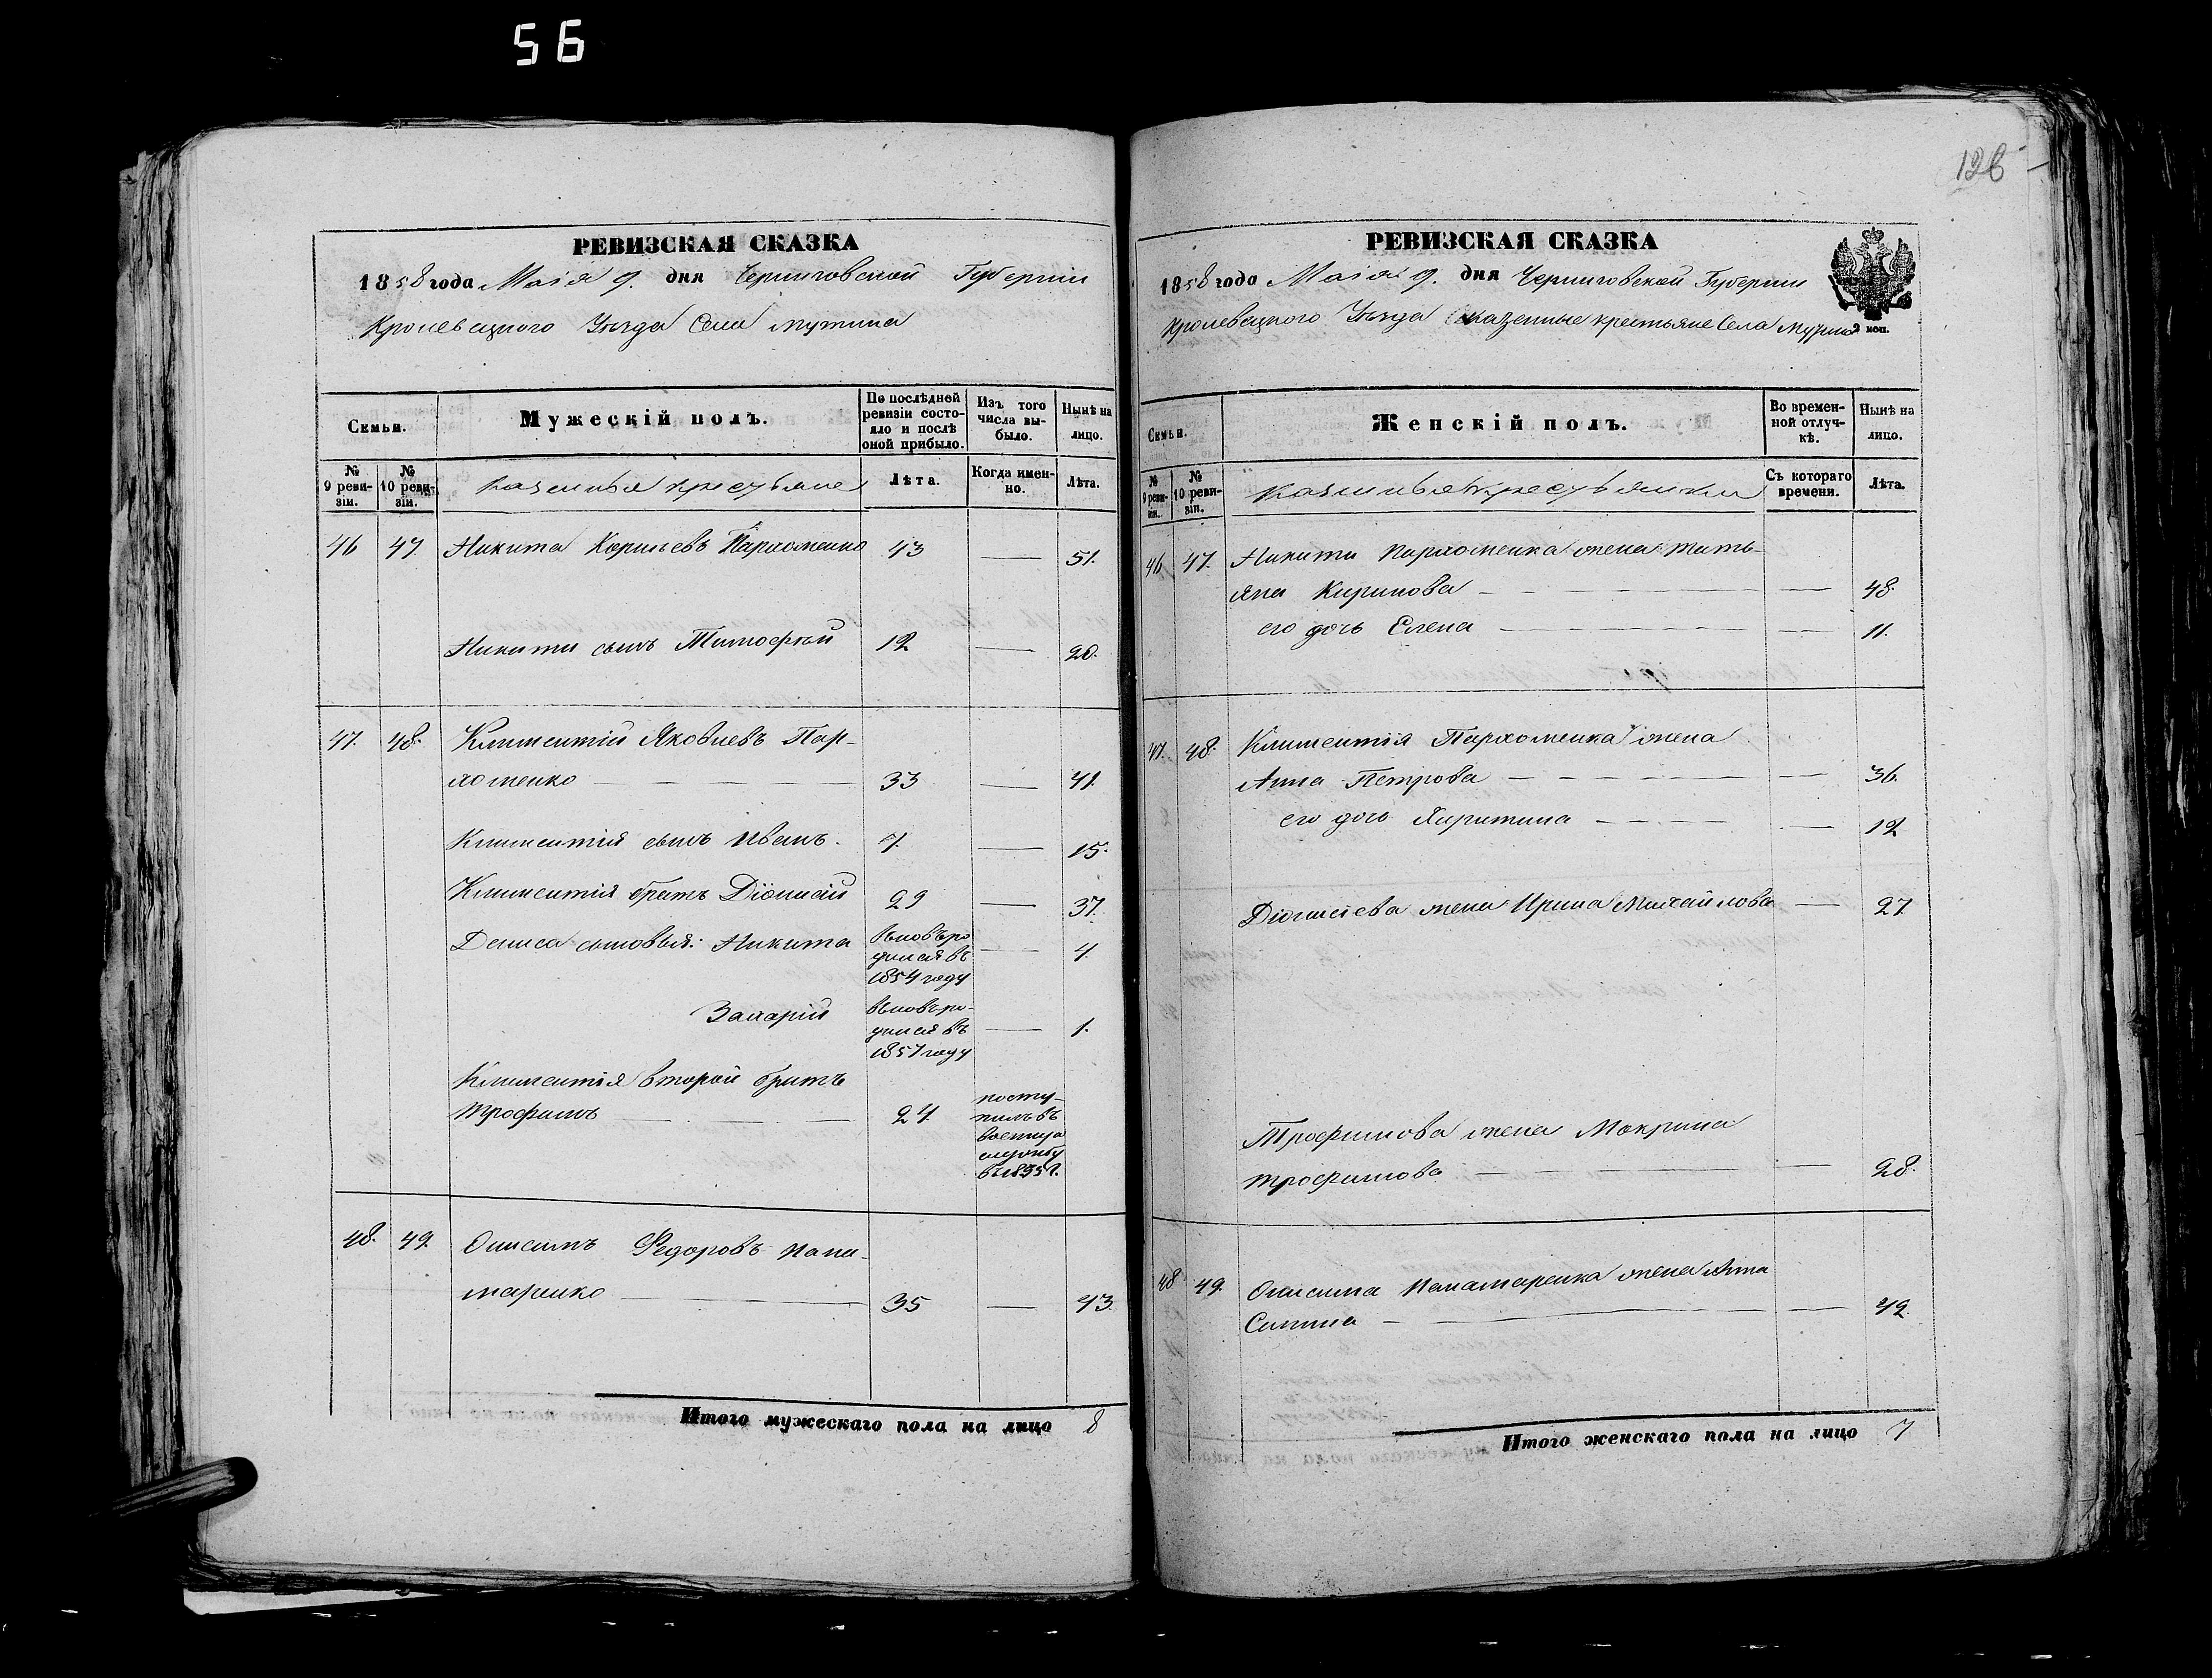 56
126
РЕВИЗСКАЯ СКАЗКА
1858 года Маія 9. дня Черниговской Губерніи
Кролевецкого Уѣзда Села Мутина
Семьи.
Мужескій полъ.
По послѣдней ревизіи состояло и послѣ оной прибыло.
Изъ того числа выбыло.
Нынѣ на лицо.
№ 9 ревизіи.
№ 10 ревизіи.
казенныя крестьяне
Лѣта.
Когда именно.
Лѣта.
46 47. Никита Пархоменко 43 — 51.
Никиты сынъ Тимофѣй 12 — 20.
47. 48. Климентій Яковлевъ Пар-
хоменко — 33 — 41.
Климентія сынъ Иванъ. 7. — 15.
Климентія братъ Діонисій 29 — 37.
Дениса сыновья: Никита вновь ро
дился въ — 4.
1854 году
Захарій вновь ро-
дился въ — 1.
1857 году
Климентія второй братъ
Трофимъ — 24 посту-
пилъ въ
военную
службу
въ г.
48. 49. Онисимъ Федоровъ Пана-
маренко — 35 — 43.
Итого мужескаго пола на лицо 8
РЕВИЗСКАЯ СКАЗКА
1858 года Маія 9. дня Черниговской Губерніи
Кролевецкого Уѣзда казенные крестьяне Села Мутина
2 коп.
Семьи.
Женскій полъ.
Во временной отлучкѣ.
Нынѣ на лицо.
№ 9 ревизіи.
№ 10 ревизіи.
казенныя крестьянки
Съ котораго времени.
Лѣта.
46 47. Никиты Пархоменка жена Тать-
яна Кирилова — — 48.
его дочь Елена — — 11.
47. 48. Климентія Пархоменка жена
Анна Петрова — — 36.
его дочь Харитина — — 12
Діонисіева жена Ирина Михайлова — 27
Трофимова жена Макрина
Трофимова — — 28.
48 49. Онисима Панамаренка жена Анна
— — 42.
Итого женскаго пола на лицо 7